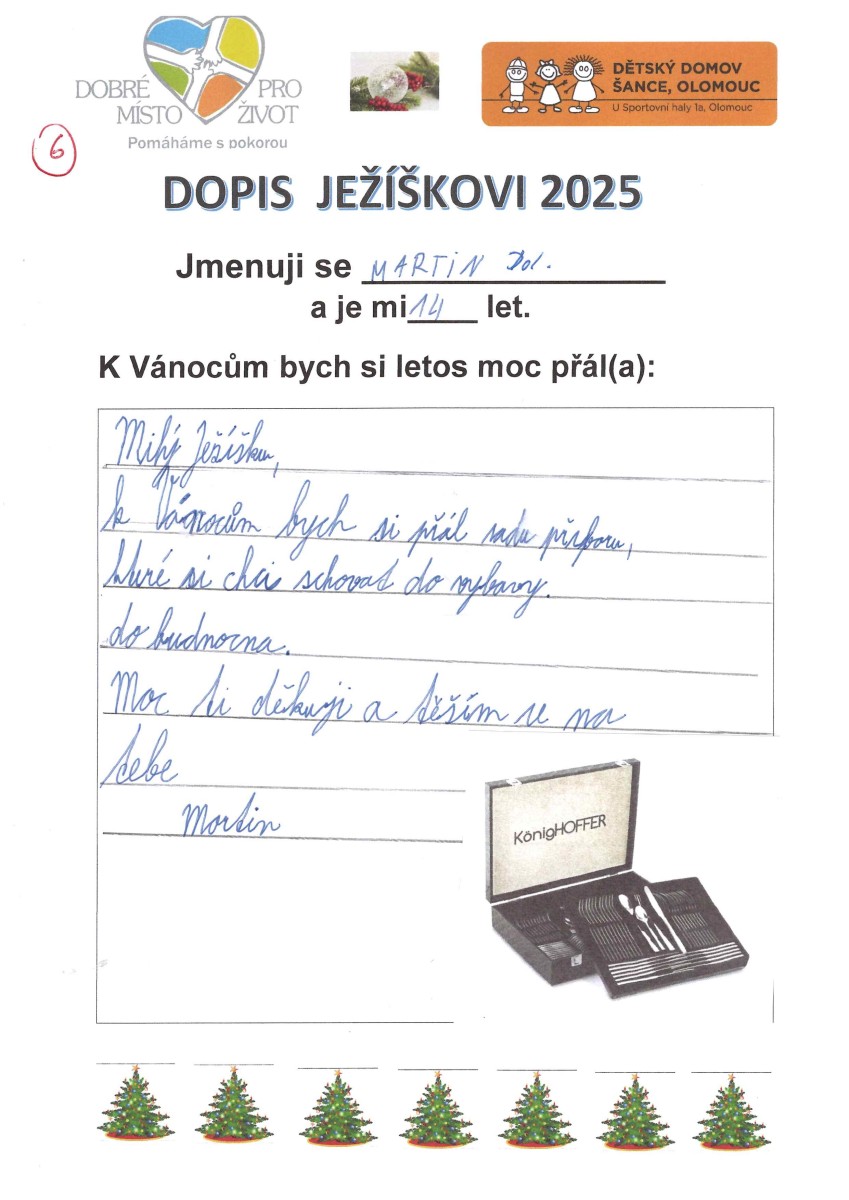 DOBRÉ PRO
MÍSTO ŽIVOT
Pomáháme s pokorou
DĚTSKÝ DOMOV
ŠANCE, OLOMOUC
U Sportovní haly 1a, Olomouc
6
DOPIS JEŽÍŠKOVI 2025
Jmenuji se MARTiN Dol.
a je mi 14 let.
K Vánocům bych si letos moc přál(a):
Milý Ježíšku,
k Vánocům bych si přál sadu příboru,
které si chci schovat do výbavy.
do budnocna.
Moc ti děkuji a těším se na
tebe
Martin
KönigHOFFER